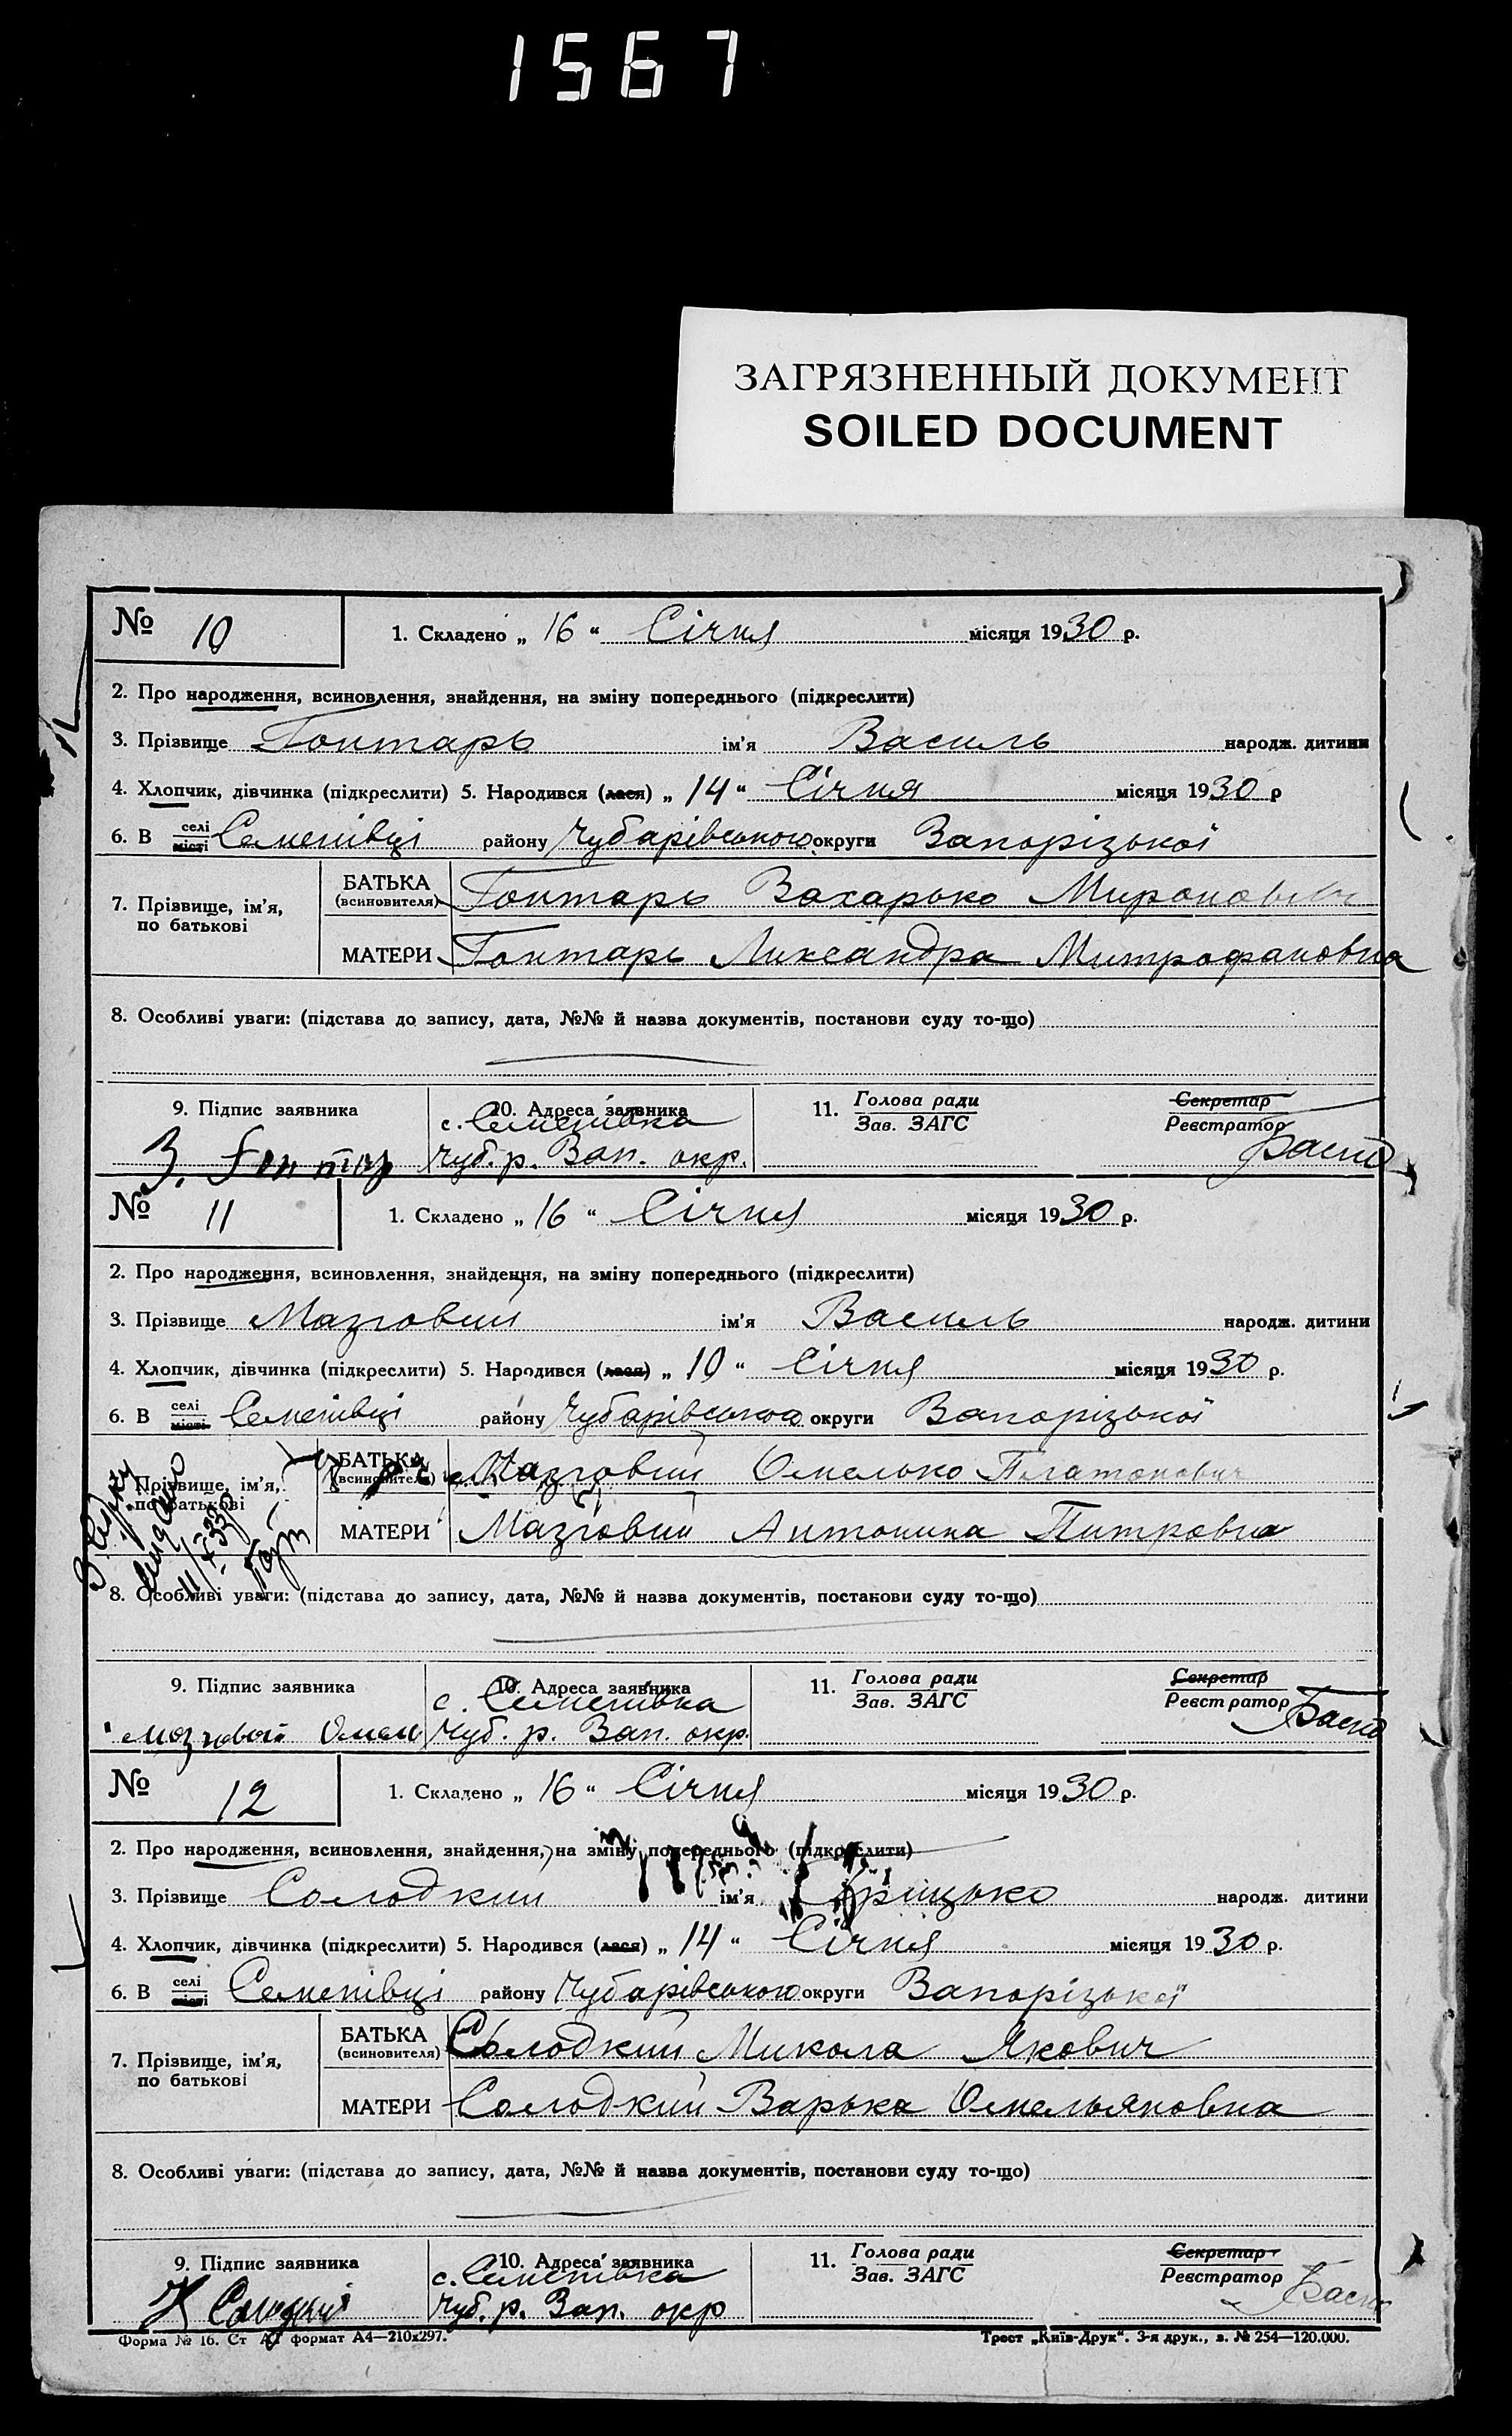 1567
ЗАГРЯЗНЕННЫЙ ДОКУМЕНТ
SOILED DOCUMENT
№ 10
1. Складено „ 16 “ Січня місяця 1930 р.
2. Про народження, всиновлення, знайдення, на зміну попереднього (підкреслити)
3. Прізвище Гонтарь ім'я Василь народж. дитини
4. Хлопчик, дівчинка (підкреслити) 5. Народився (лася) „ 14 “ Січня місяця 1930 р
6. В селі місті Семенівці району Чубарівського округи Запорізької
7. Прізвище, ім'я, по батькові
БАТЬКА (всиновителя) Гонтарь Захарько Миронович
МАТЕРИ Гонтарь Ликсандра Митрофановна
8. Особливі уваги: (підстава до запису, дата, №№ й назва документів, постанови суду то-що)
9. Підпис заявника 10. Адреса заявника 11. Голова ради Секретар
с. Семенівка Зав. ЗАГС Реєстратор
З. Гонтар Чуб. р. Зап. окр.
№ 11
1. Складено „ 16 “ Січня місяця 1930 р.
2. Про народження, всиновлення, знайдення, на зміну попереднього (підкреслити)
3. Прізвище Мазговий ім'я Василь народж. дитини
4. Хлопчик, дівчинка (підкреслити) 5. Народився (лася) „ 10 “ Січня місяця 1930 р.
6. В селі місті Семенівці району Чубарівського округи Запорізької
7. Прізвище, ім'я, по батькові
БАТЬКА (всиновителя) Мазговий Омелько Платонович
МАТЕРИ Мазговий Антонина Питровна
8. Особливі уваги: (підстава до запису, дата, №№ й назва документів, постанови суду то-що)
9. Підпис заявника 10. Адреса заявника 11. Голова ради Секретар
с. Семенівка Зав. ЗАГС Реєстратор
мозговой Омел Чуб. р. Зап. окр.
№ 12
1. Складено „ 16 “ Січня місяця 1930 р.
2. Про народження, всиновлення, знайдення, на зміну попереднього (підкреслити)
3. Прізвище Солодкий ім'я Грицько народж. дитини
4. Хлопчик, дівчинка (підкреслити) 5. Народився (лася) „ 14 “ Січня місяця 1930 р.
6. В селі місті Семенівці району Чубарівського округи Запорізької
7. Прізвище, ім'я, по батькові
БАТЬКА (всиновителя) Солодкий Микола Якович
МАТЕРИ Солодкий Варька Омельяновна
8. Особливі уваги: (підстава до запису, дата, №№ й назва документів, постанови суду то-що)
9. Підпис заявника 10. Адреса заявника 11. Голова ради Секретар
с. Семенівка Зав. ЗАГС Реєстратор
Чуб. р. Зап. окр
Форма № 16. Ст А4 формат А4—210х297. Трест „Київ-Друк“. 3-я друк., з. № 254—120.000.